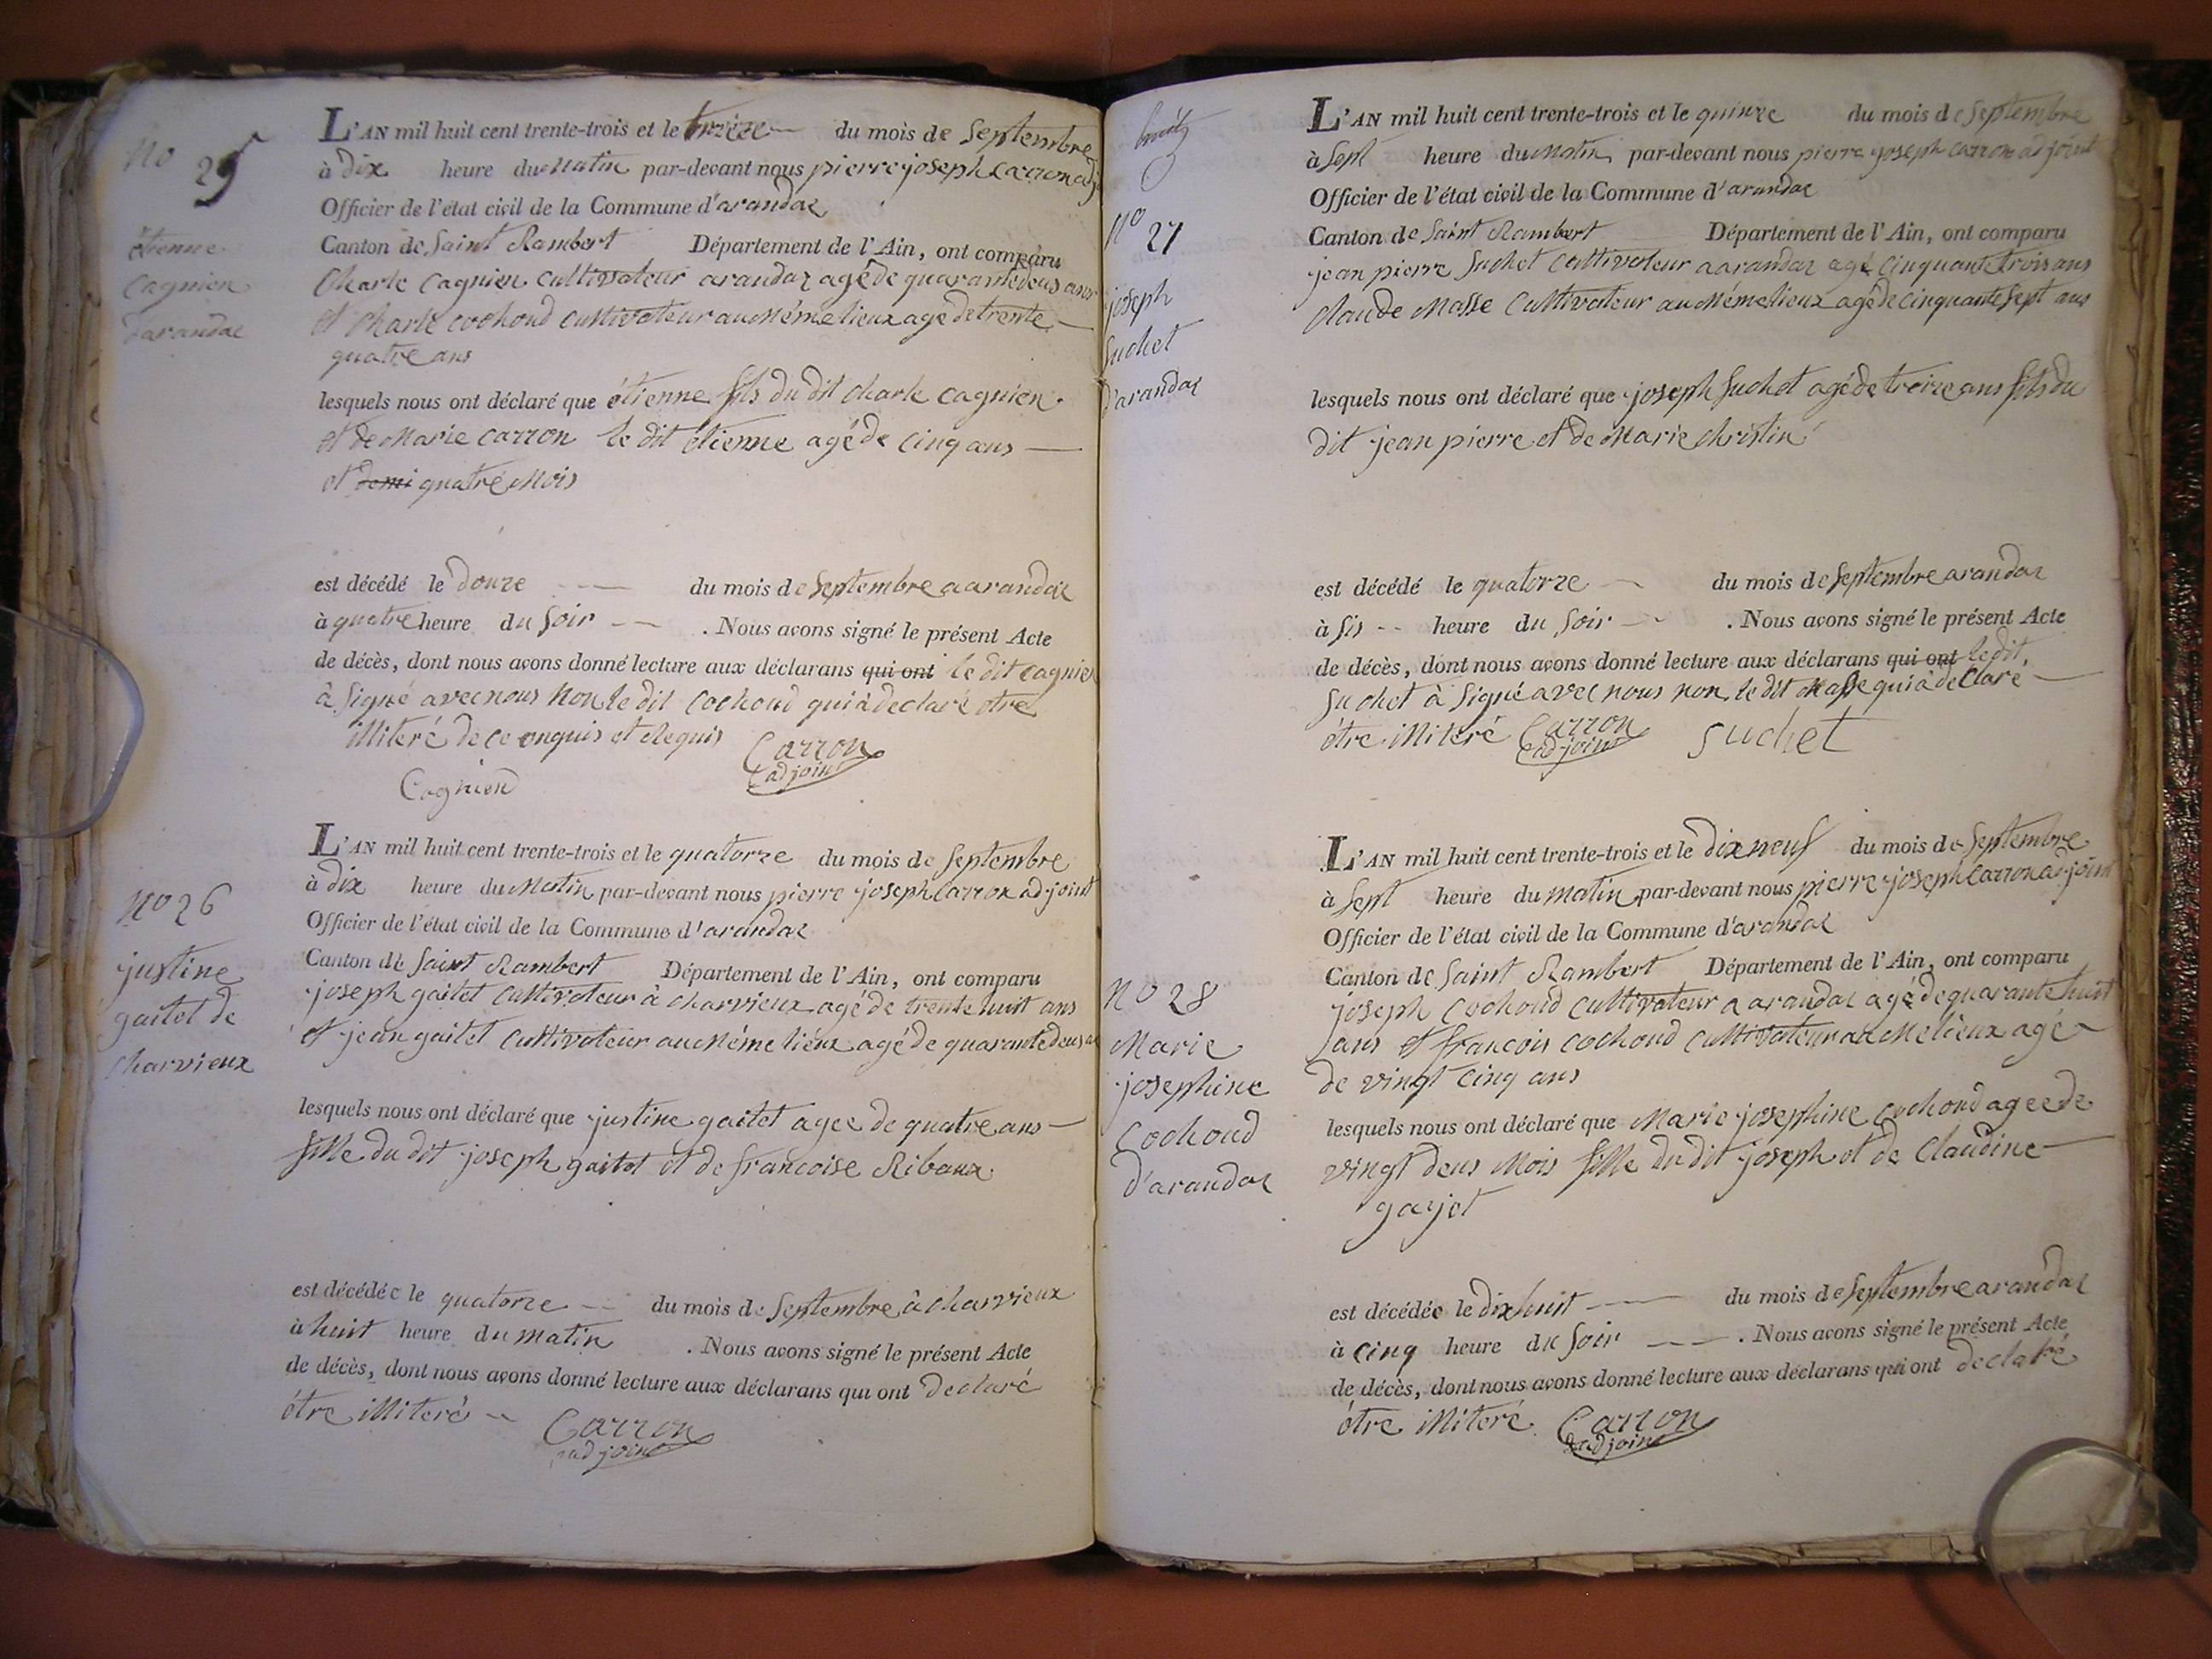 No 25
étienne
Cagnien
d'arandaz
L'AN mil huit cent trente-trois et le treize du mois de Septembre
à dix heure du Matin par-devant nous pierre joseph Carron adj
Officier de l'état civil de la Commune d'arandaz
Canton de Saint Rambert Département de l'Ain, ont comparu
Charle Cagnien Cultivateur arandaz agé de quarante deus ans
et Charle Cochoud Cultivateur au Méme lieux agé de trente —
quatre ans
lesquels nous ont déclaré que étienne fils du dit Charle Cagnien
et de Marie Carron le dit étienne agé de Cinq ans —
et demi quatre Mois
est décédé le douze — du mois de Septembre a arandaz
à quatre heure du Soir — . Nous avons signé le présent Acte
de décès, dont nous avons donné lecture aux déclarans qui ont le dit Cagnien
à Signé avec nous Non le dit Cochoud qui à declaré étre
illiteré de ce enquis et Requis Carron
adjoint
Cagniend
No 26
justine
gaitet de
Charvieux
L'AN mil huit cent trente-trois et le quatorze du mois de Septembre
à dix heure du Matin par-devant nous pierre joseph Carron adjoint
Officier de l'état civil de la Commune d'arandaz
Canton de Saint Rambert Département de l'Ain, ont comparu
joseph gaitet Cultivateur à Charvieux agé de trente huit ans
et jean gaitet Cultivateur au Méme liéux agé de quarante deus
lesquels nous ont déclaré que justine gaitet agee de quatre ans —
fille du dit joseph gaitet et de francoise Ribaux
est décédée le quatorze — du mois de Septembre à charvieux
à huit heure du matin . Nous avons signé le présent Acte
de décès, dont nous avons donné lecture aux déclarans qui ont declaré
étre illiteré — Carron
adjoint
huit
No 27
joseph
Suchet
d'arandaz
L'AN mil huit cent trente-trois et le quinze du mois de Septembre
à Sept heure du Matin par-devant nous pierre joseph Carron adjoint
Officier de l'état civil de la Commune d'arandaz
Canton de Saint Rambert Département de l'Ain, ont comparu
jean pierre Suchet Cultivateur a arandaz agé Cinquante trois ans
Claude Masse Cultivateur au Méme lieux agé de cinquante Sept ans
lesquels nous ont déclaré que joseph Suchet agé de treize ans fils du
dit jean pierre et de Marie Christin
est décédé le quatorze — du mois de Septembre arandaz
à Sis -- heure du Soir — . Nous avons signé le présent Acte
de décès, dont nous avons donné lecture aux déclarans qui ont le dit
Suchet à Signé avec nous non le dit Masse qui à declaré —
étre illiteré Carron Suchet
adjoint
No 28
Marie
josephine
Cochoud
d'arandaz
L'AN mil huit cent trente-trois et le dix neuf du mois de Septembre
à Sept heure du matin par-devant nous pierre joseph Carron adjoint
Officier de l'état civil de la Commune d'arandaz
Canton de Saint Rambert Département de l'Ain, ont comparu
joseph Cochoud Cultivateur a arandaz agé de quarante huit
ans et francois Cochoud Cultivateur au Me lieux agé
de vingt Cinq ans
lesquels nous ont déclaré que Marie josephine Cochoud agee de
vingt deus Mois fille du dit joseph et de Claudine —
garjot
est décédée le dix huit — du mois de Septembre arandaz
à Cinq heure du Soir — . Nous avons signé le présent Acte
de décès, dont nous avons donné lecture aux déclarans qui ont declaré
étre illiteré Carron
adjoint